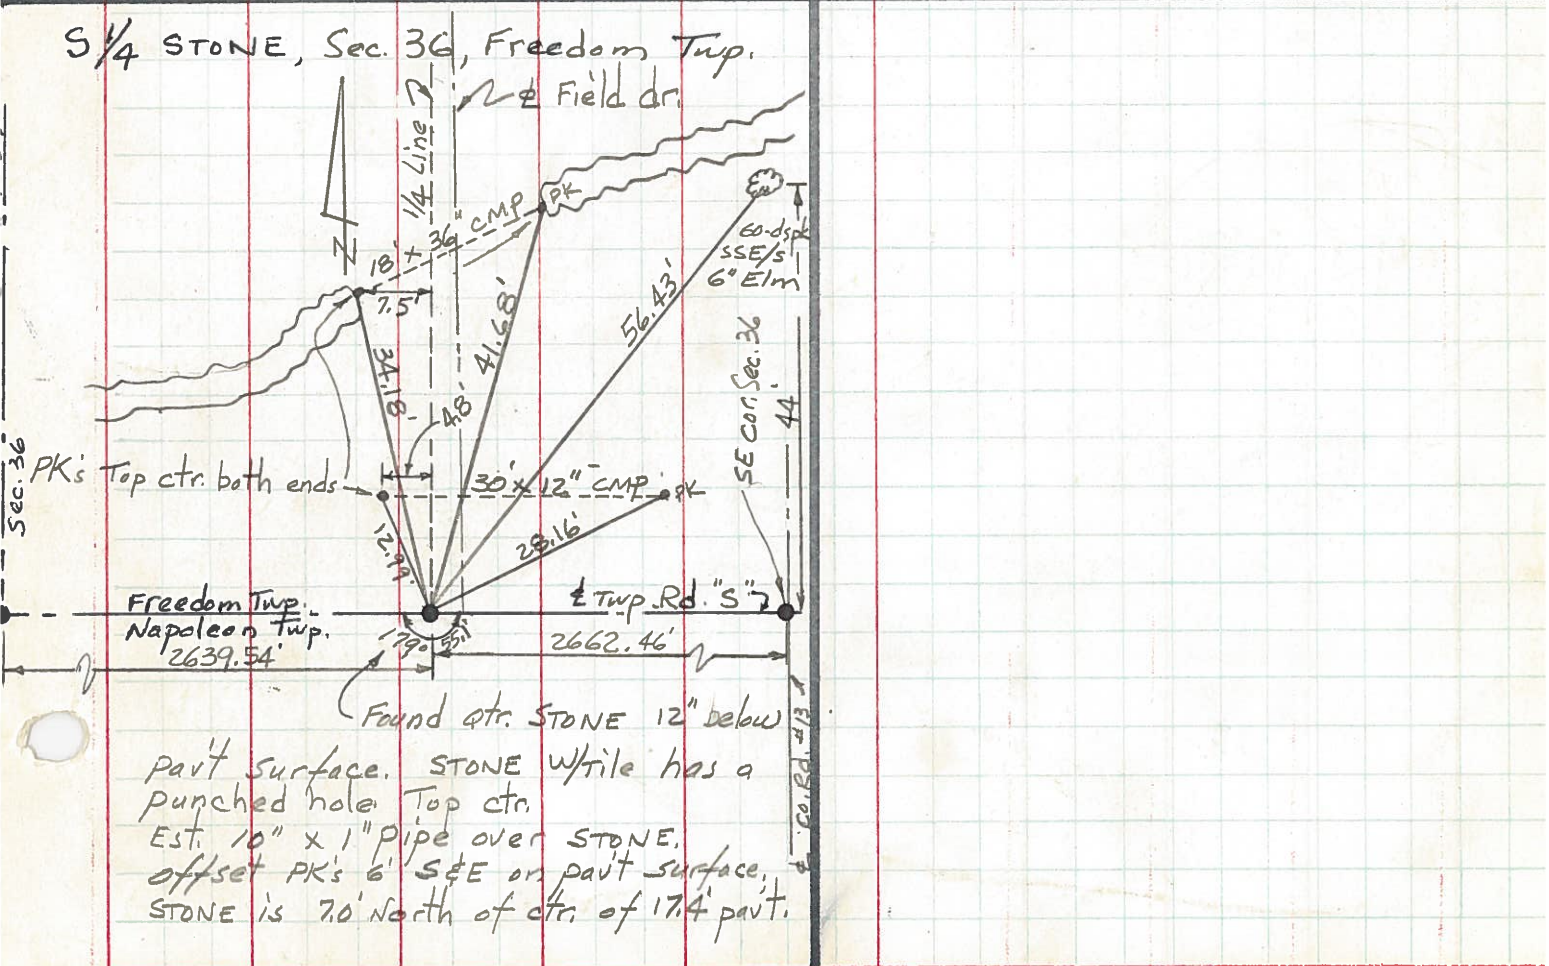 S 1/4 STONE, Sec. 36, Freedom Twp.
1/4 Line
℄ Field dr.
N
18' x 36" CMP
PK
7.5'
60-dspk
SSE/s
6" Elm
34.18
41.68'
56.43'
4.8'
44'
SE Cor. Sec. 36
Sec. 36
PK's Top ctr. both ends
30' x 12" CMP
PK
12.99'
28.16'
Freedom Twp.
Napoleon Twp.
℄ Twp. Rd. "S"
179°
55.1'
2639.54'
2662.46'
℄ Co. Rd. #13
Found qtr. STONE 12" below
pav't surface. STONE W/Tile has a
punched hole Top ctr.
Est. 10" x 1" pipe over STONE.
offset PK's 6' S&E on pav't surface.
STONE is 7.0' North of ctr. of 17.4' pav't.